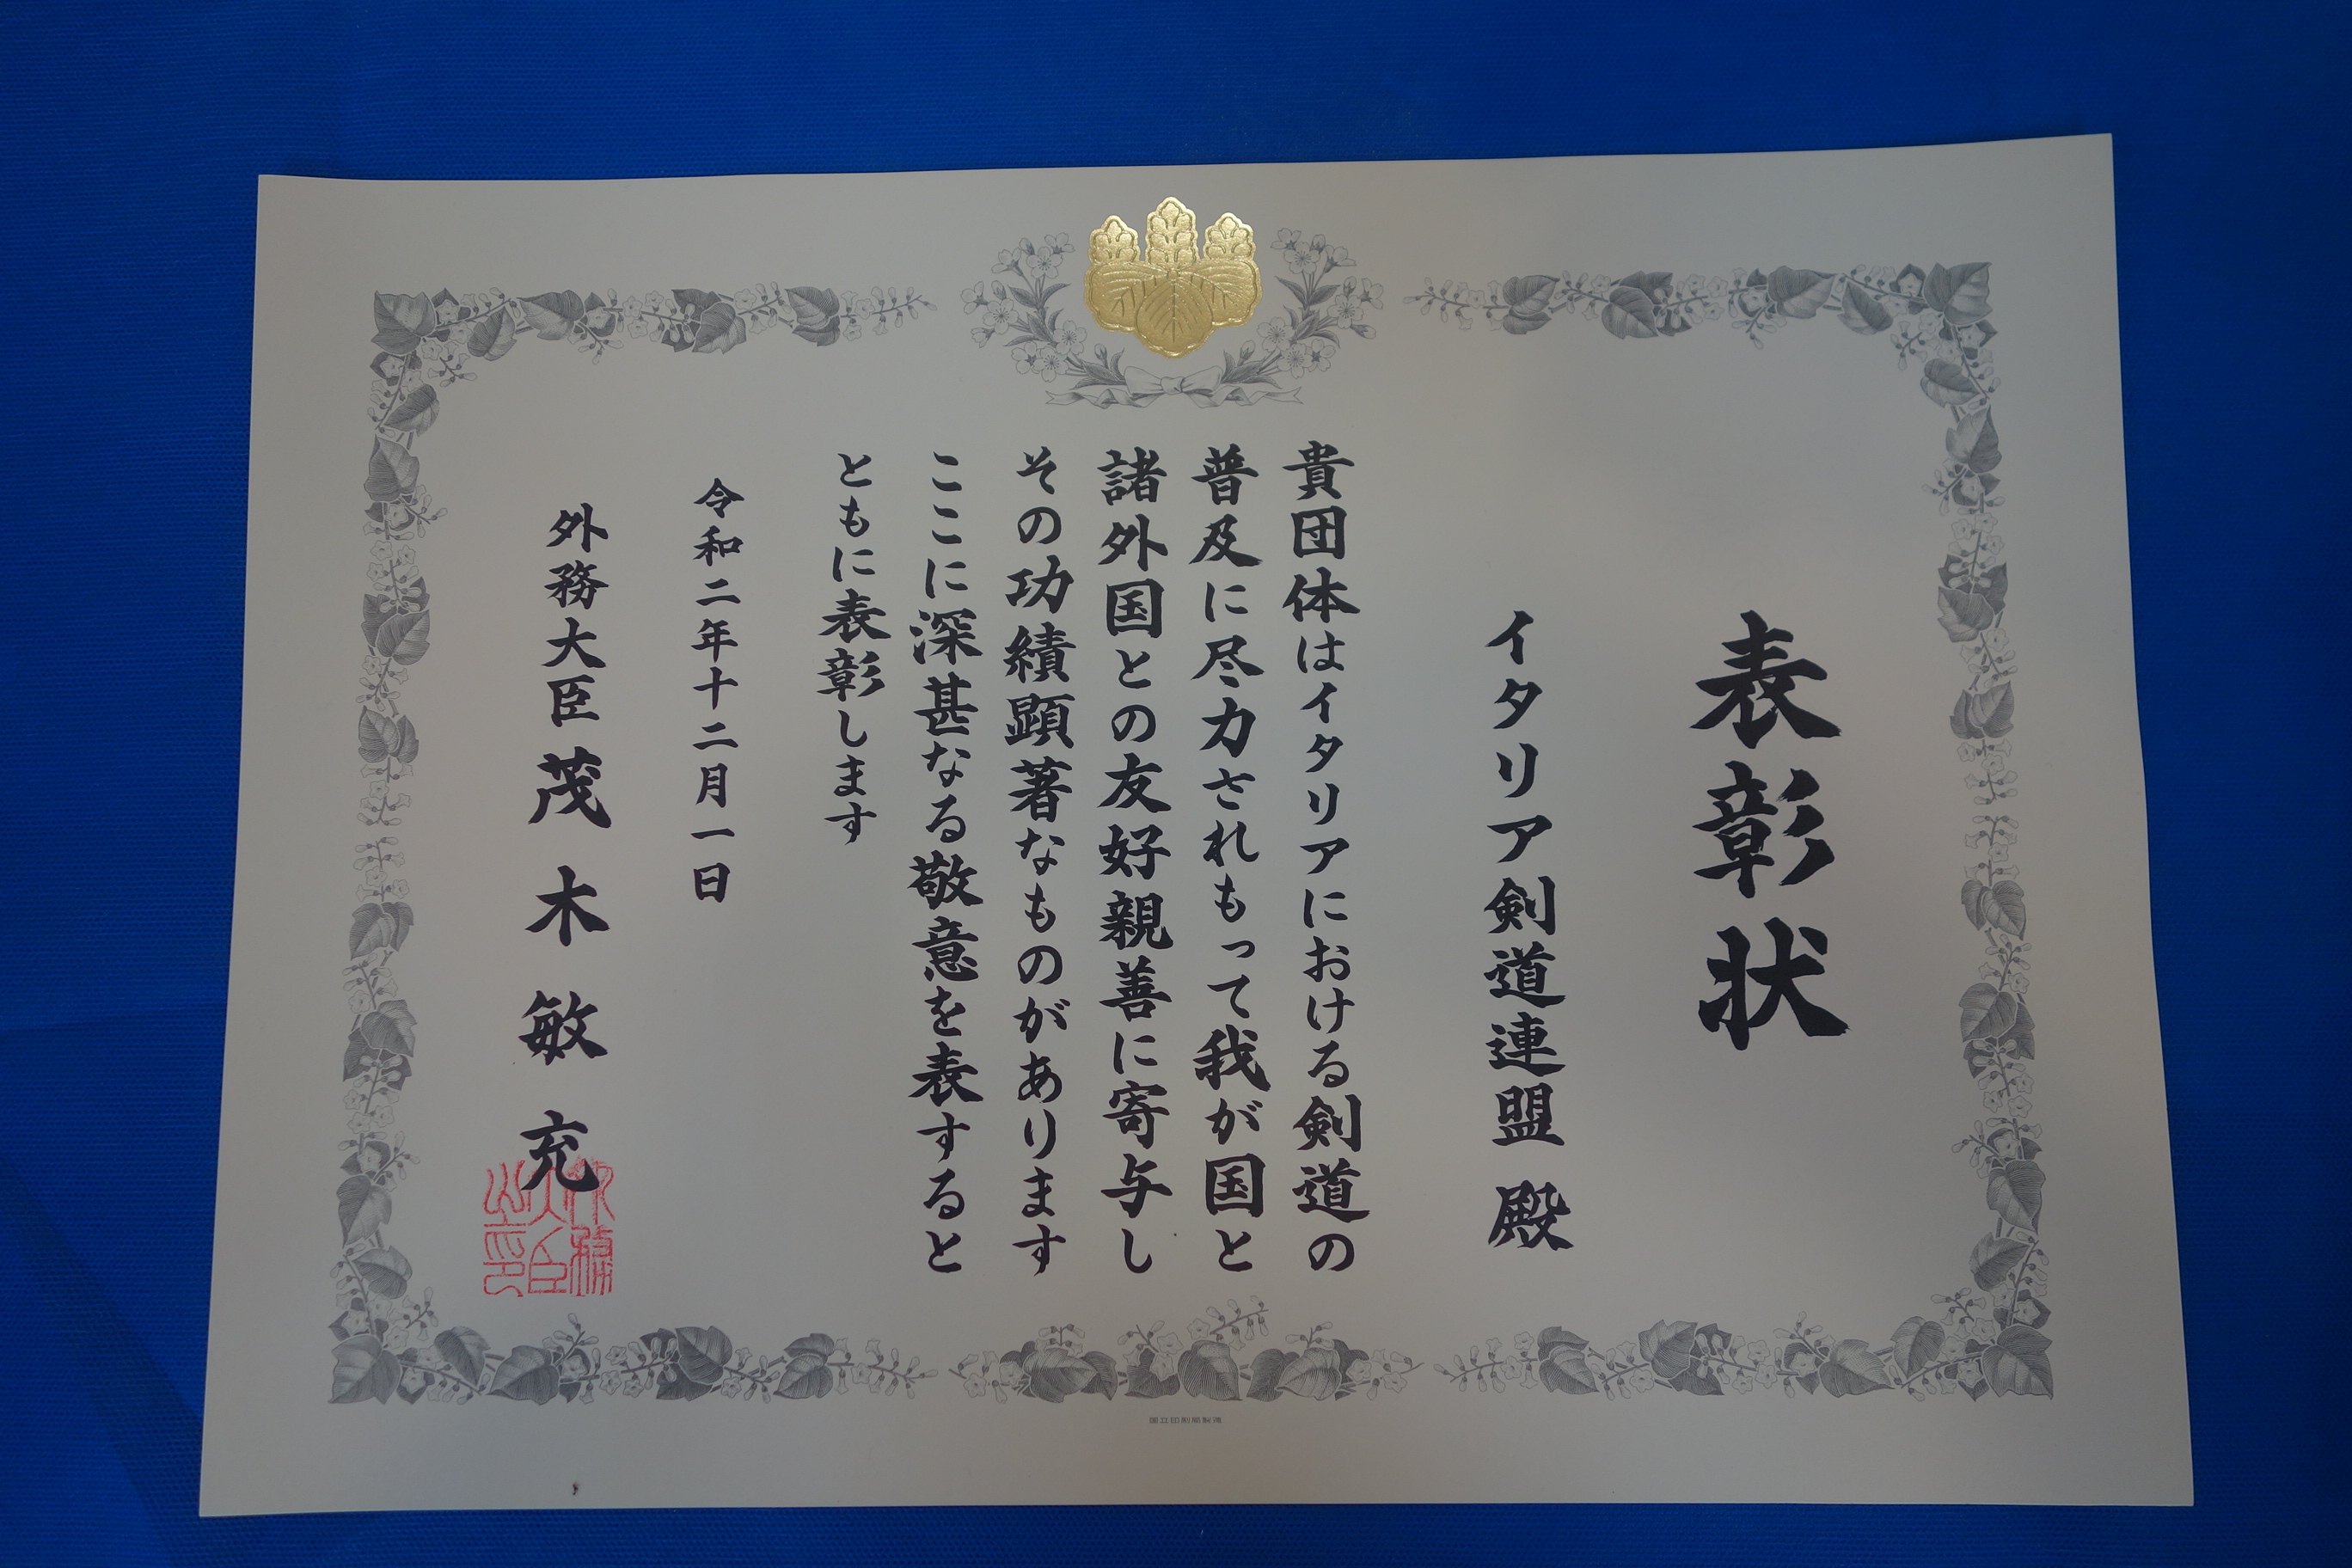 表彰状
イタリア剣道連盟 殿
貴団体はイタリアにおける剣道の
普及に尽力されもって我が国と
諸外国との友好親善に寄与し
その功績顕著なものがあります
ここに深甚なる敬意を表すると
ともに表彰します
令和二年十二月一日
外務大臣 茂木敏充
外務大臣之印
国立印刷局製造